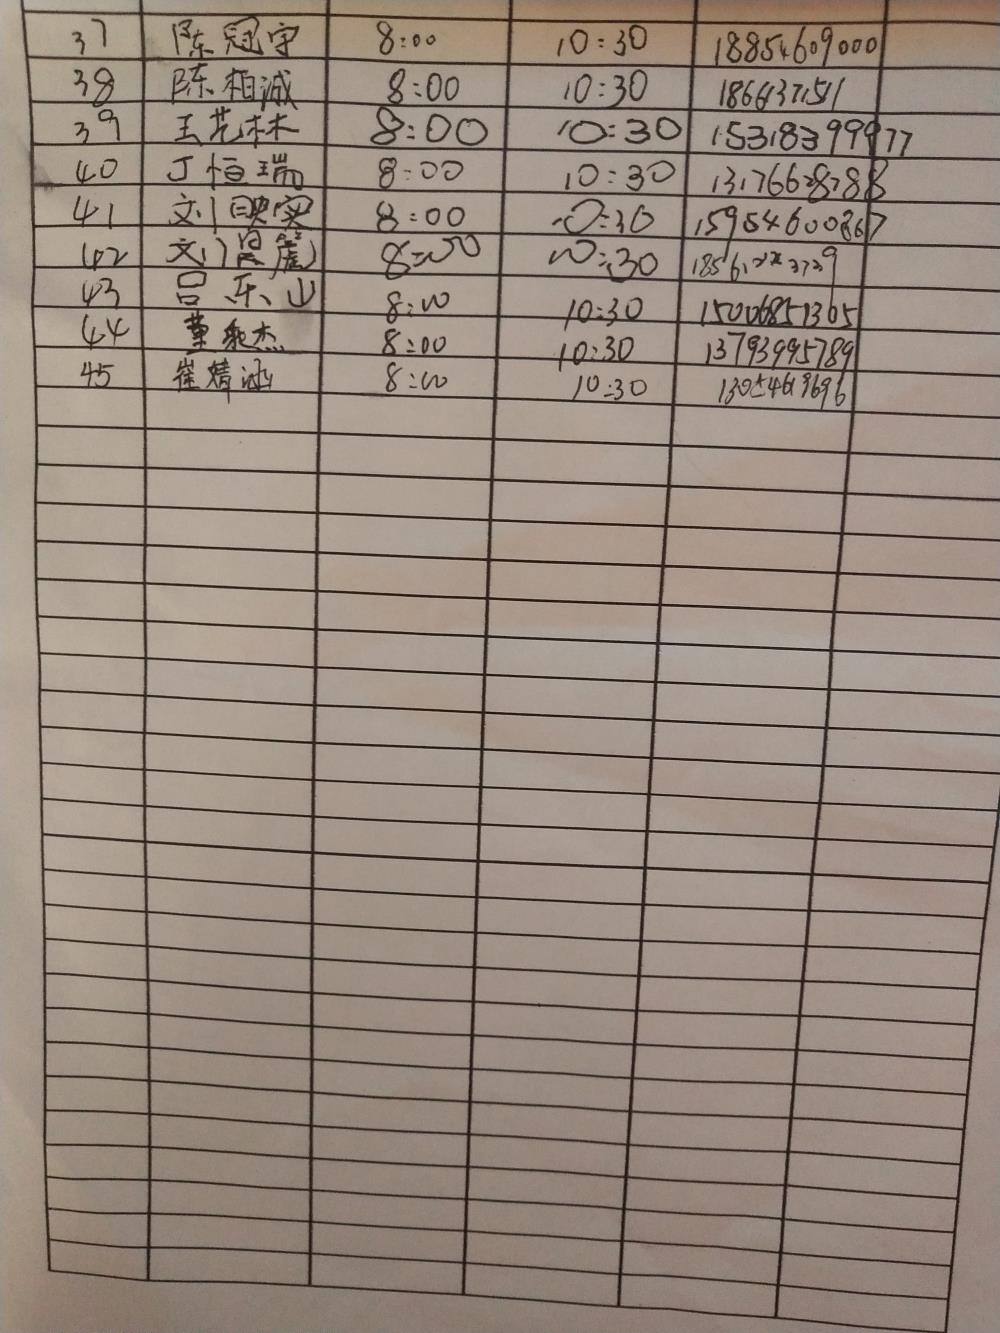 37 陈冠宇 8:00 10:30 18854609000
38 陈柏诚 8:00 10:30
39 王艺林 8:00 10:30 15318399977
40 丁恒瑞 8:00 10:30 13176628788
41 刘映实 8:00 10:30 15954600867
42 刘昱麓 8:00 10:30
43 吕乐山 8:00 10:30 15006851305
44 董 杰 8:00 10:30 13793995789
45 崔婧涵 8:00 10:30 13054619696